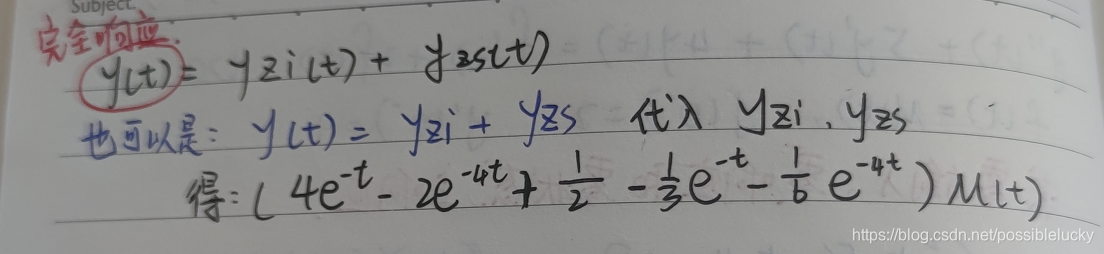 Subject.
完全响应.
y(t) = yzi(t) + yzs(t)
也可以是: y(t) = yzi + yzs 代入 yzi、yzs
得: ( 4e^-t - 2e^-4t + 1/2 - 1/3 e^-t - 1/6 e^-4t ) u(t)
https://blog.csdn.net/possiblelucky